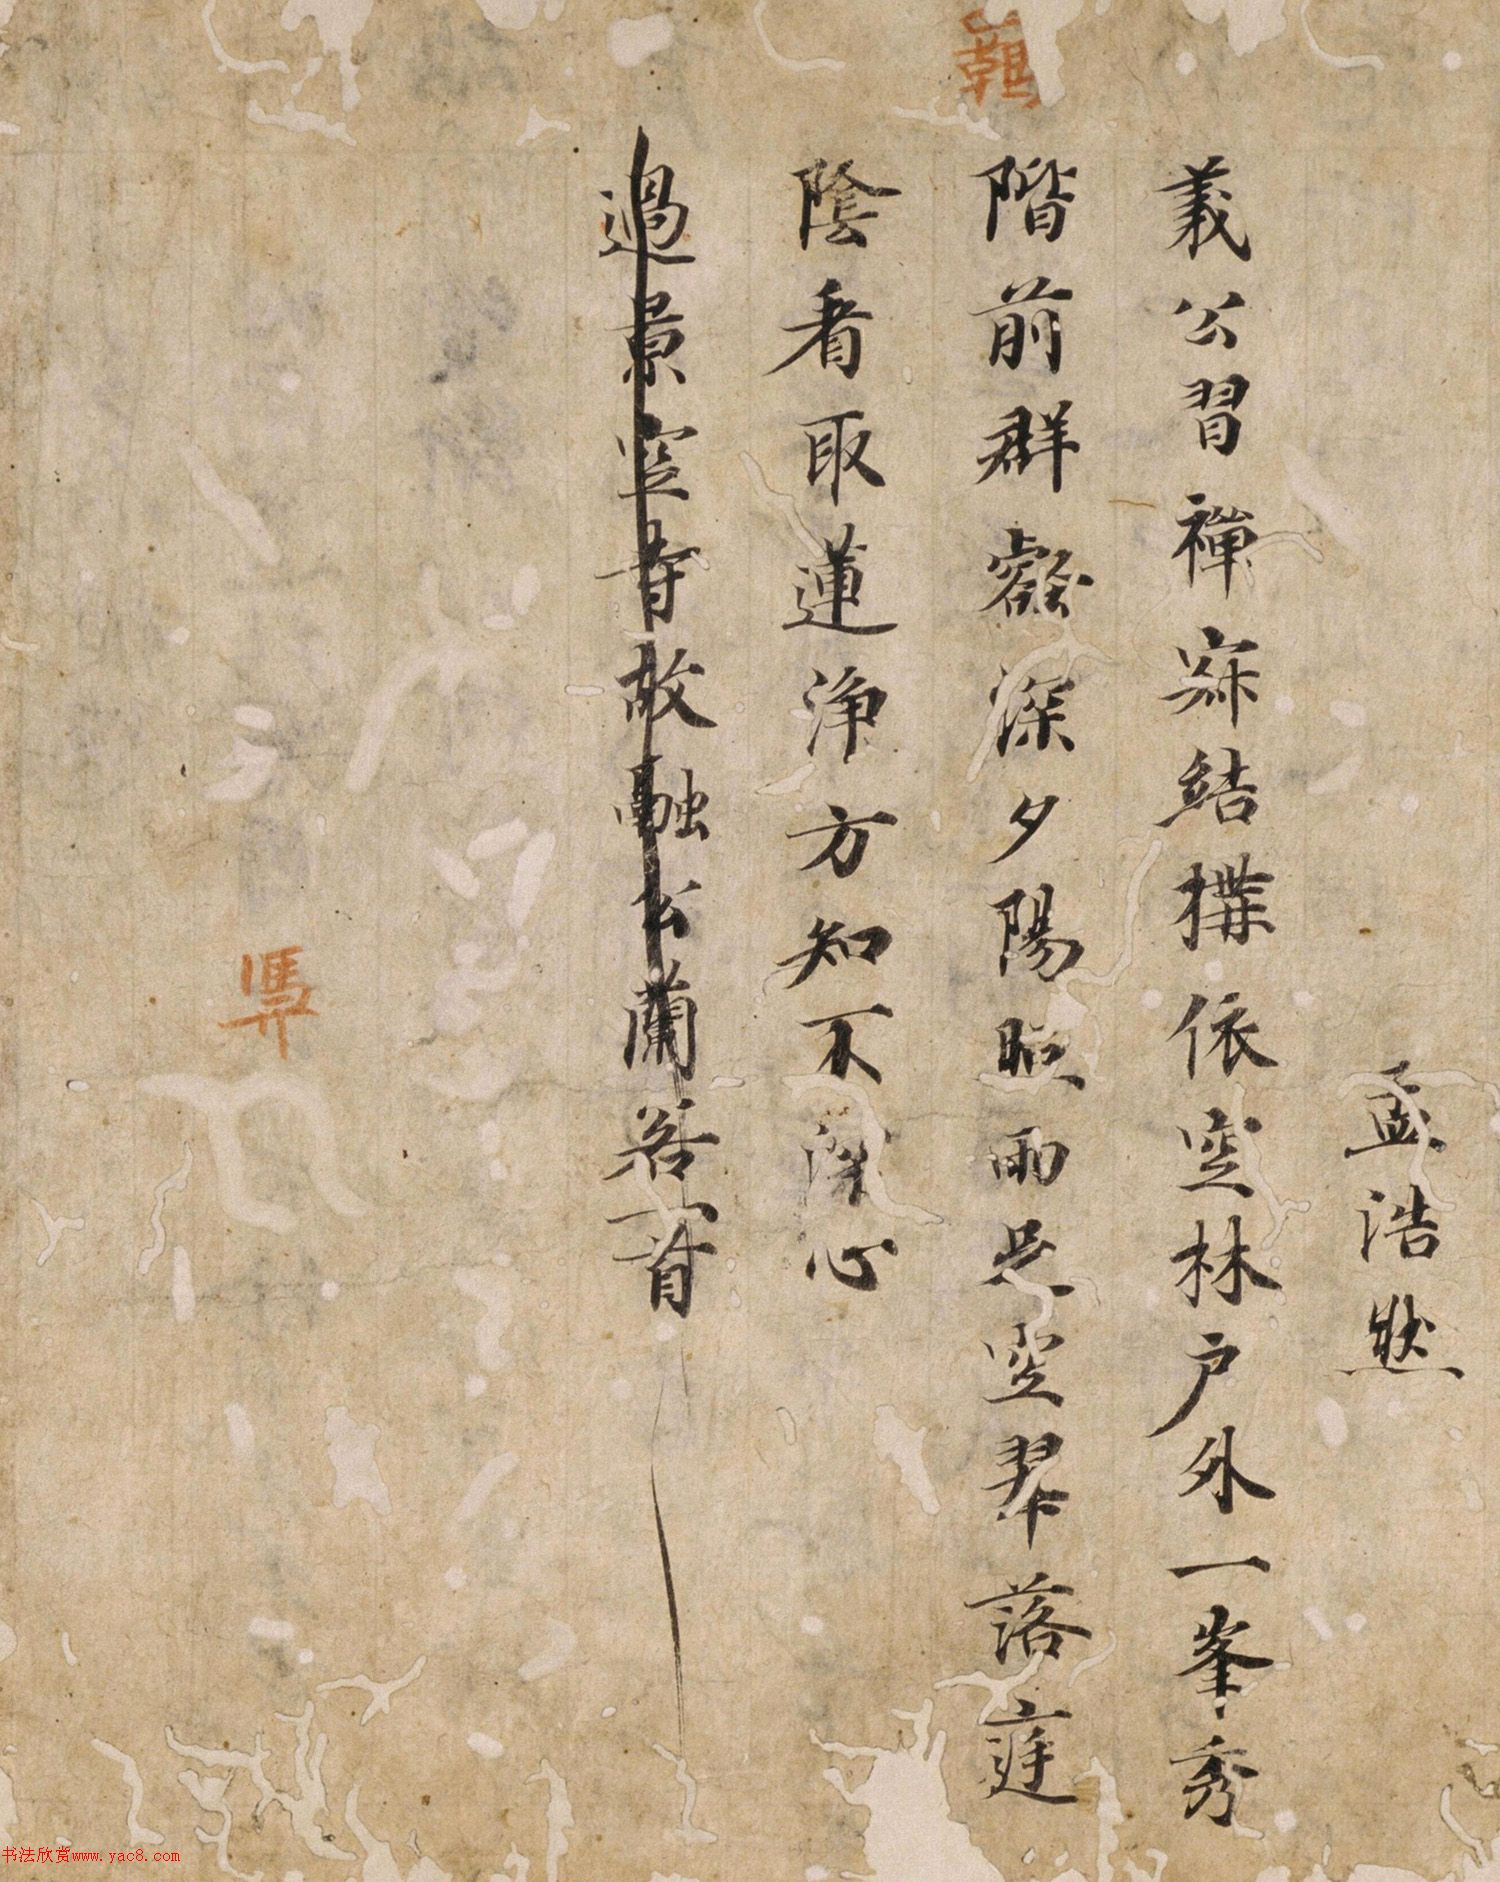 孟浩然
義公習禪寂結構依空林户外一峯秀
階前群壑深夕陽照雨足空翠落庭
陰看取蓮淨方知不染心
過景空寺故融公蘭若一首
书法欣赏www.yac8.com